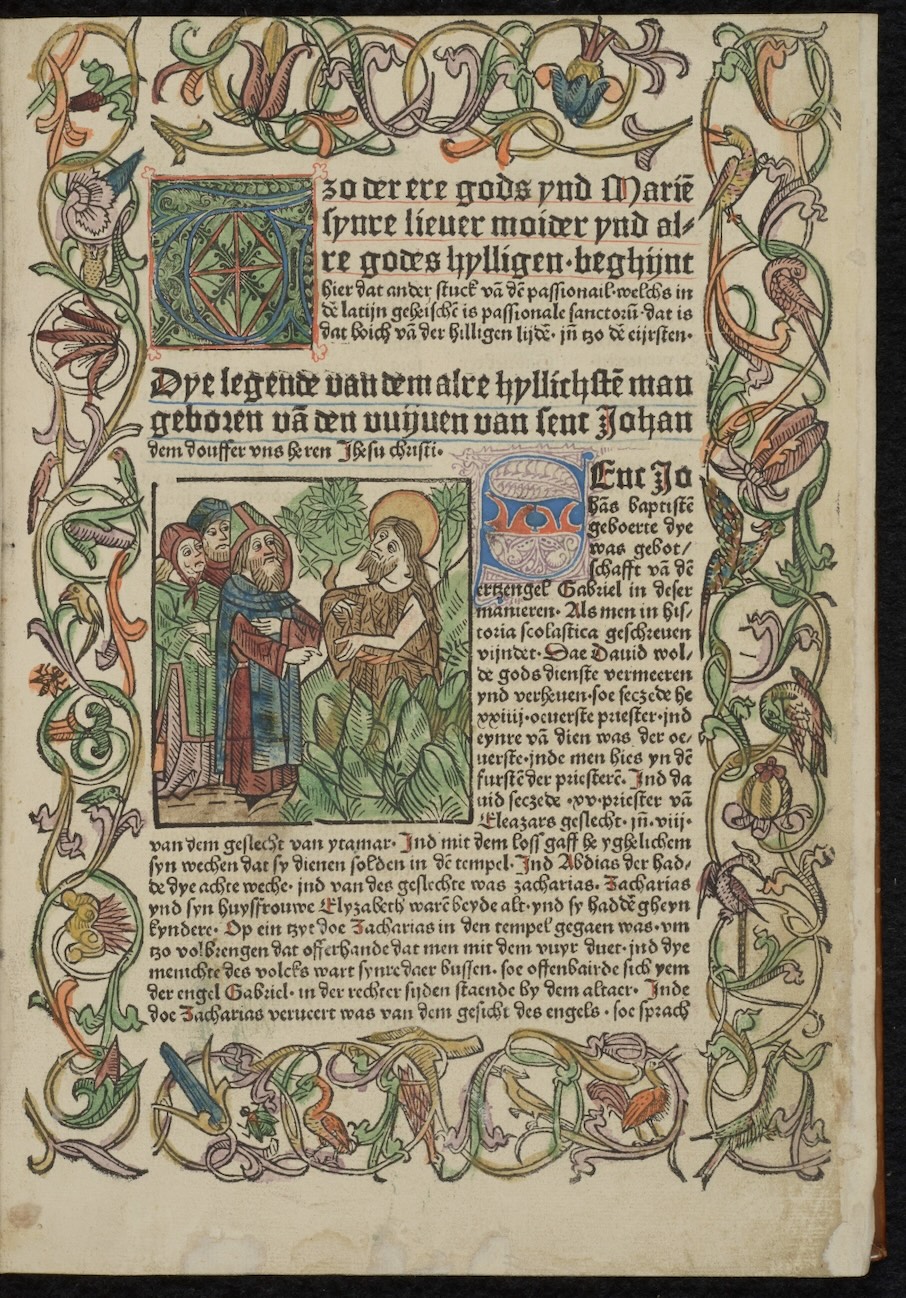 Tzo der ere gods ynd Mariē
synre lieuer moider ynd al⸗
re godes hylligen·beghijnt
hier dat ander stuck vā dē passionail·welchs in
dē latijn geheischē is passionale sanctorū·dat is
dat boich vā der hilligen lijdē· jn̄ tzo dē eijrsten·
Dye legende van dem alre hyllichstē man
geboren vā den vuijuen van sent Johan
dem douffer vns heren Jhesu christi·
SEnt Jo
hās baptistē
geboerte dye
was gebot/
schafft vā dē
ertzengel Gabriel in deser
manieren· Als men in his/
toria scolastica geschreuen
vijndet· Dae Dauid wol/
de gods dienste vermeeren
ynd verheuen·soe seczede he
xxiiij·oeuerste priester·jnd
eynre vā dien was der oe/
uerste·jnde men hies yn dē
furstē der priesterē· Jnd da
uid seczede ·xv·priester vā
Eleazars geslecht· jn̄·viij·
van dem geslecht van ytamar· Jnd mit dem loss gaff he yghelichem
syn wechen dat sy dienen solden in dē tempel· Jnd Abdias der had/
de dye achte weche· jnd van des geslechte was zacharias· Zacharias
ynd syn huysfrouwe Elyzabeth warē beyde alt·ynd sy haddē gheyn
kyndere· Op ein tzyt doe Zacharias in den tempel gegaen was·vm
tzo volbrengen dat offerhande dat men mit dem vuyr duet·jnd dye
menichte des volcks wart synre daer bussen· soe offenbairde sich yem
der engel Gabriel· in der rechter sijden staende by dem altaer· Jnde
doe Zacharias verueert was van dem gesicht des engels · soe sprach